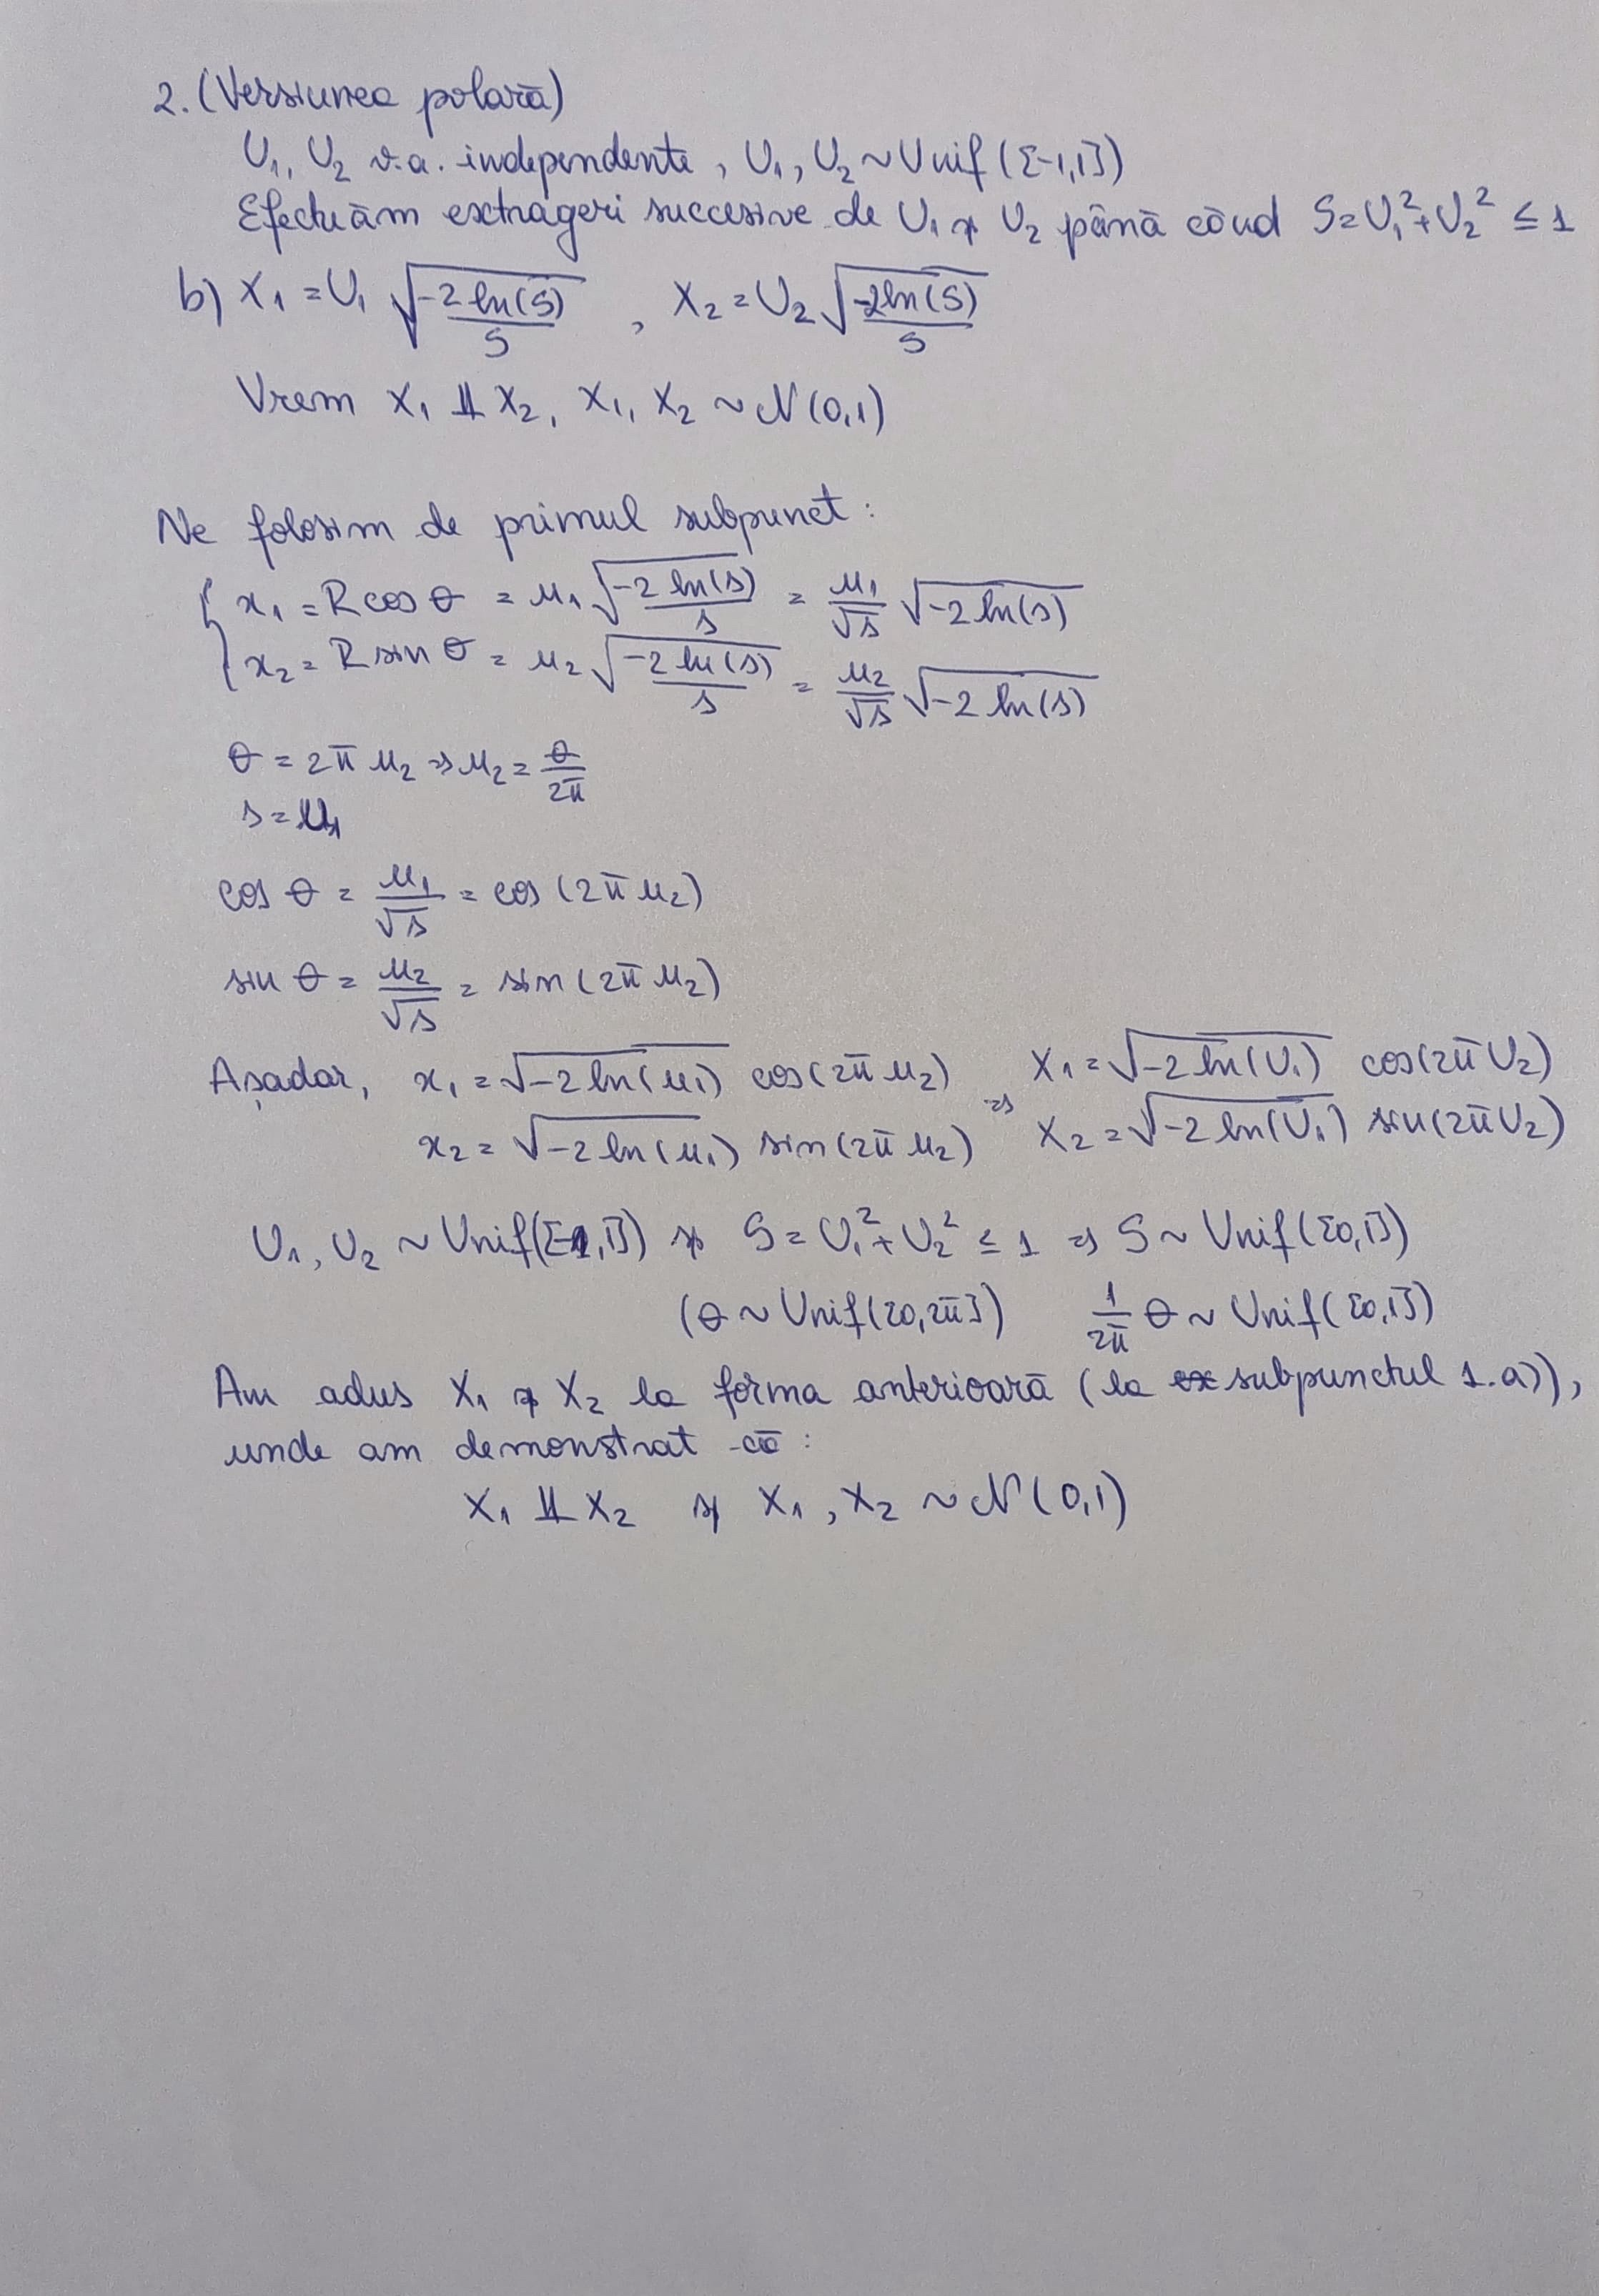 2. (Versiunea polară)
U₁, U₂ v.a. independente, U₁, U₂ ~ Unif([-1,1])
Efectuăm extrageri succesive de U₁ și U₂ până când S=U₁²+U₂² ≤ 1
b) X₁ = U₁ √(-2 ln(S)/S) , X₂ = U₂ √(-2 ln(S)/S)
Vrem X₁ ⫫ X₂, X₁, X₂ ~ N(0,1)
Ne folosim de primul subpunct:
{ x₁ = R cos θ = u₁ √(-2 ln(s)/s) = u₁/√s √(-2 ln(s))
x₂ = R sin θ = u₂ √(-2 ln(s)/s) = u₂/√s √(-2 ln(s))
θ = 2π u₂ ⇒ u₂ = θ/2π
s = u₁
cos θ = u₁/√s = cos (2π u₂)
sin θ = u₂/√s = sin (2π u₂)
Așadar, x₁ = √(-2 ln(u₁)) cos(2π u₂) ⇒ X₁ = √(-2 ln(U₁)) cos(2π U₂)
x₂ = √(-2 ln(u₁)) sin(2π u₂) X₂ = √(-2 ln(U₁)) sin(2π U₂)
U₁, U₂ ~ Unif([-1,1]) și S = U₁²+U₂² ≤ 1 ⇒ S ~ Unif([0,1])
(θ ~ Unif([0,2π]) 1/2π θ ~ Unif([0,1])
Am adus X₁ și X₂ la forma anterioară (la ex subpunctul 1.a)),
unde am demonstrat că:
X₁ ⫫ X₂ și X₁, X₂ ~ N(0,1)